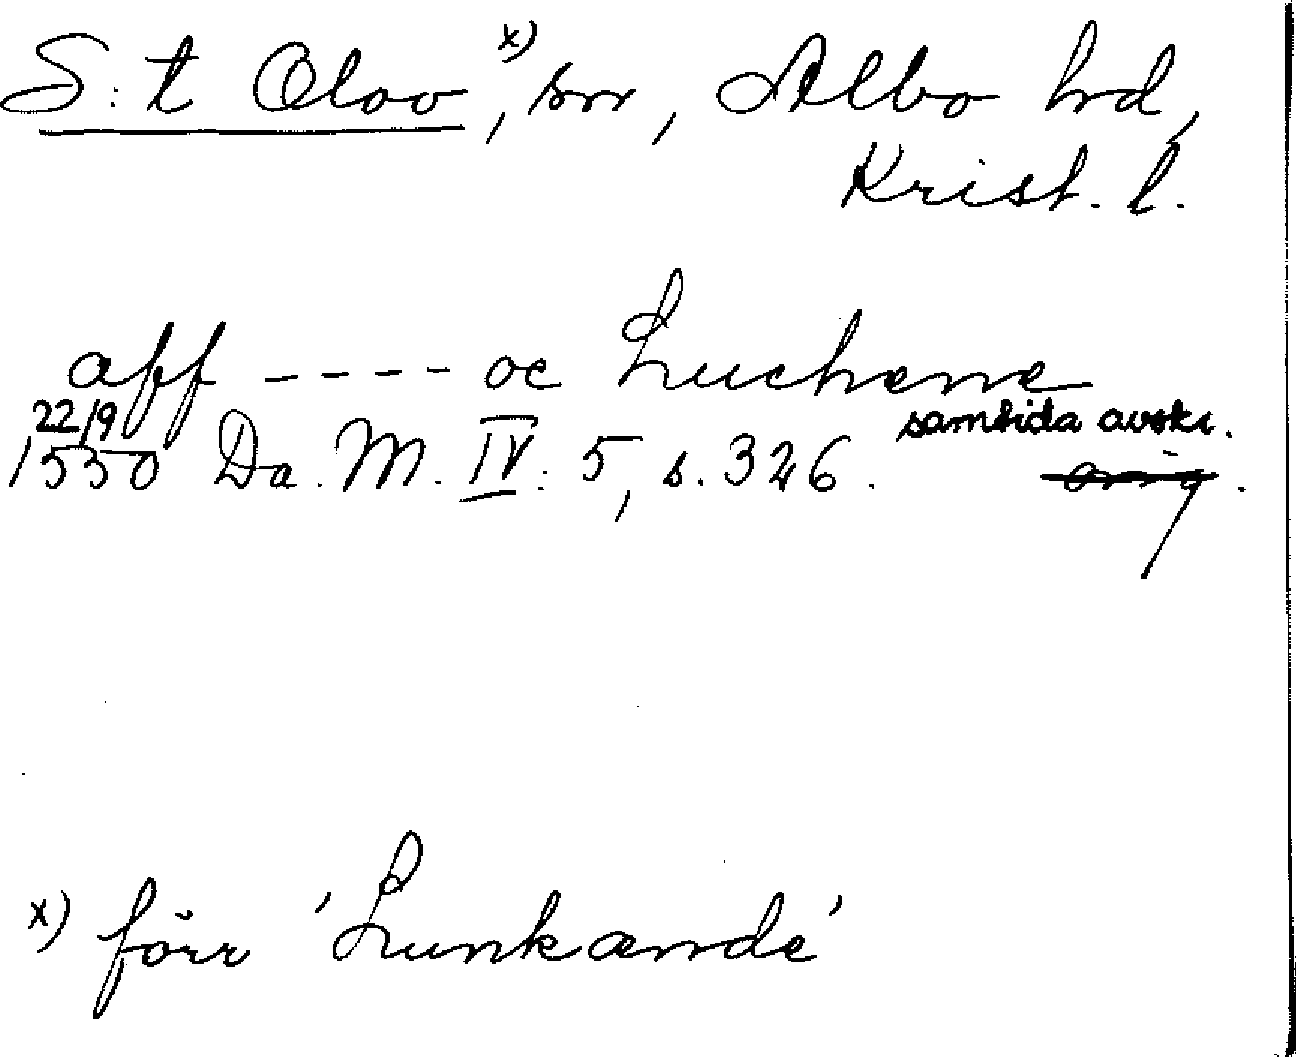 S:t Olov x), sn, Albo hd,
Krist. l.
aff ---- oc Luchene
22/9 samtida avskr.
1530 Da. M. IV: 5, s. 326. orig.
x) förr 'Lunkande'